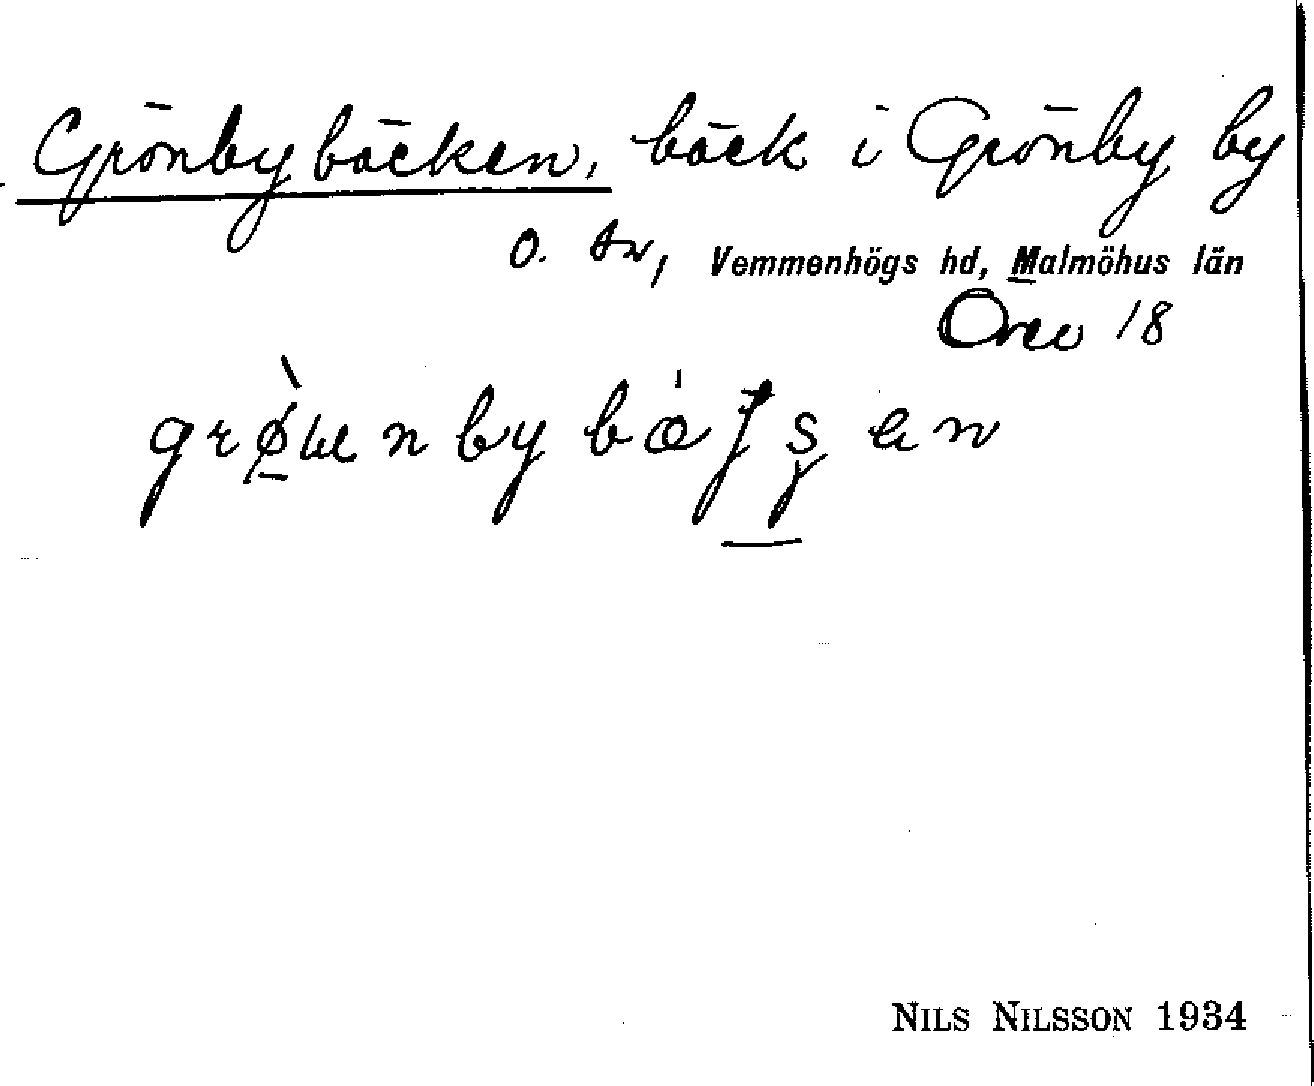 Grönbybäcken, bäck i Grönby by
o. sn, Vemmenhögs hd, Malmöhus län
18
NILS NILSSON 1934